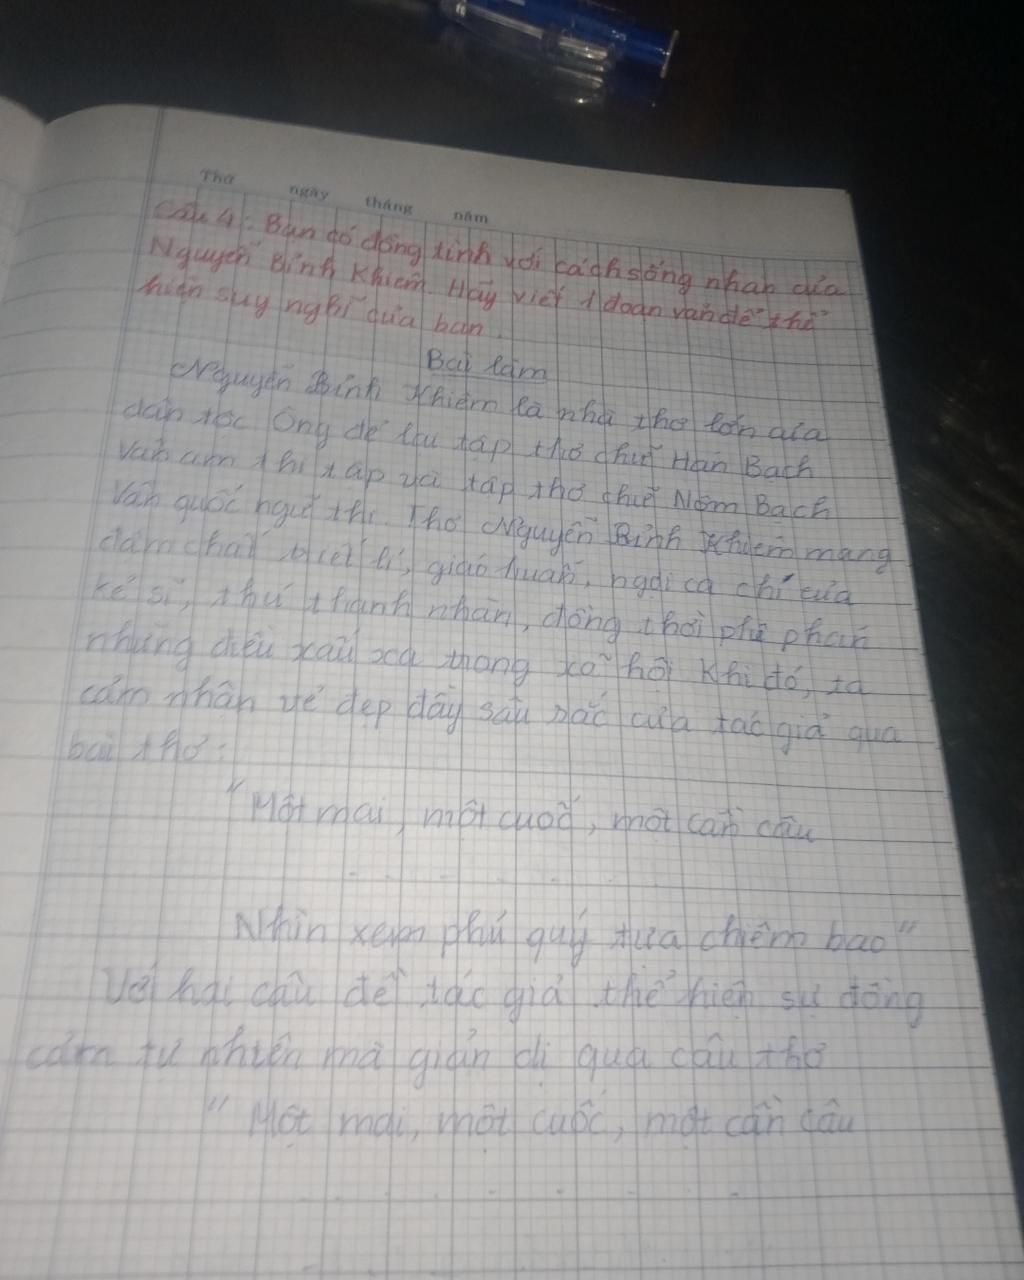 Thứ ngày tháng năm
Câu 4: Bạn có đồng tình với cách sống nhàn của
Nguyễn Bỉnh Khiêm. Hãy viết 1 đoạn văn để thể
hiện suy nghĩ của bạn.
Bài làm
Nguyễn Bỉnh Khiêm là nhà thơ lớn của
dân tộc. Ông để lại tập thơ chữ Hán Bạch
Vân am thi tập và tập thơ chữ Nôm Bạch
Vân quốc ngữ thi. Thơ Nguyễn Bỉnh Khiêm mang
đậm chất triết lí, giáo huấn, ngợi ca chí của
kẻ sĩ, thú thanh nhàn, đồng thời phê phán
những điều xấu xa trong xã hội. Khi đó, ta
cảm nhận vẻ đẹp đầy sâu sắc của tác giả qua
bài thơ:
"Một mai, một cuốc, một cần câu
.............
Nhìn xem phú quý tựa chiêm bao"
Với hai câu đề tác giả thể hiện sự đồng
cảm tự nhiên mà giản dị qua câu thơ
"Một mai, một cuốc, một cần câu